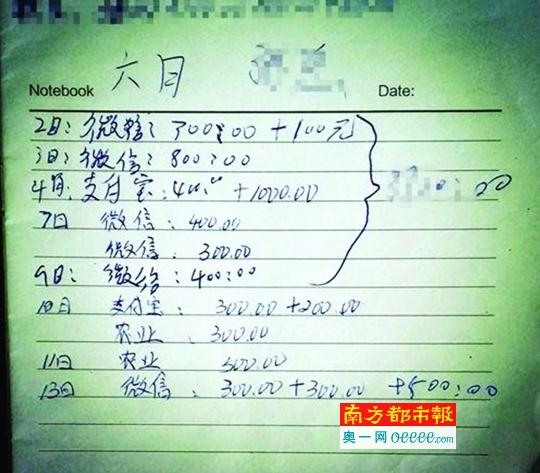 Notebook 六月 Date:
2日：微信：700:00 +100元
3日：微信：800:00
4日：支付宝：400.00 +1000.00
7日 微信：400.00
微信：300.00
9日：微信：400:00
10日 支付宝：300.00+200.00
农业：300.00
11日 农业 500.00
13日 微信：300.00+300.00 +500:00
南方都市報
奥一网 oeeee.com